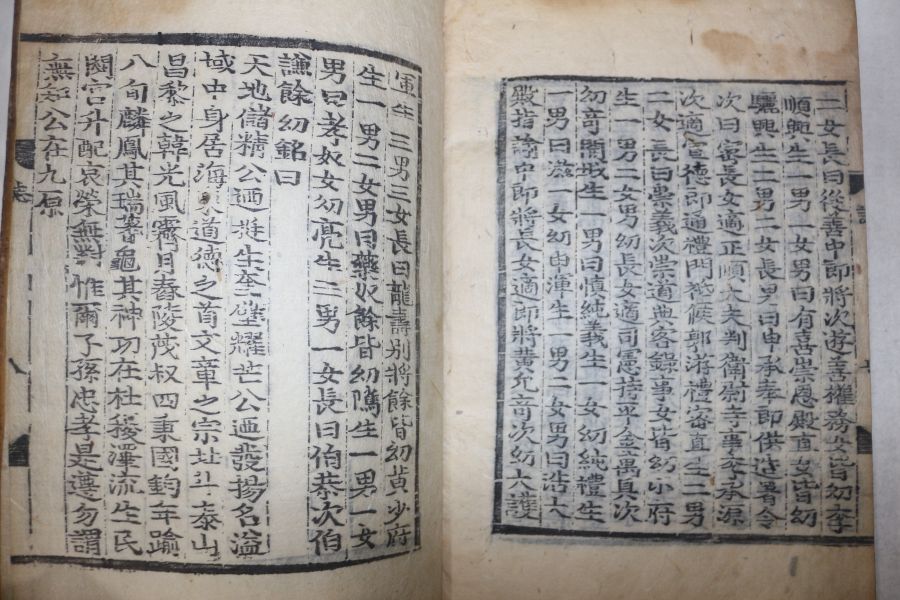 二女長曰後善中郎將次遊善權務女皆幼李
順興生一男一女男曰有喜崇恩殿直女皆幼
驪興生二男二女長男曰申承奉郎供造署令
次曰審長女適正順大夫判衛尉寺事李承源
次適宣德郎通禮門祗候郭游禮審直生二男
二女長曰崇義次崇道典客錄事女皆幼小府
生一男二女男幼長女適司憲持平金萬具次
幼奇開城生一男曰慎純義生一女幼純禮生
一男曰滋一女幼由渾生一男二女男曰浩大
殿指諭中郎將長女適郎將黃允奇次幼大護
軍生三男三女長曰龍壽別將餘皆幼黃少府
生一男二女男曰藥奴餘皆幼隲生一男一女
男曰孝奴女幼亮生三男一女長曰伯恭次伯
謙餘幼銘曰
天地儲精公迺挺生奎璧耀芒公迺發揚名溢
域中身居海東道德之首文章之宗壯斗泰山
昌黎之韓光風霽月舂陵茂叔四秉國鈞年踰
八旬麟鳳其瑞蓍龜其神功在社稷澤流生民
閟宮升配哀榮無對惟爾子孫忠孝是遵勿謂
無知公在九原
誌
八
誌